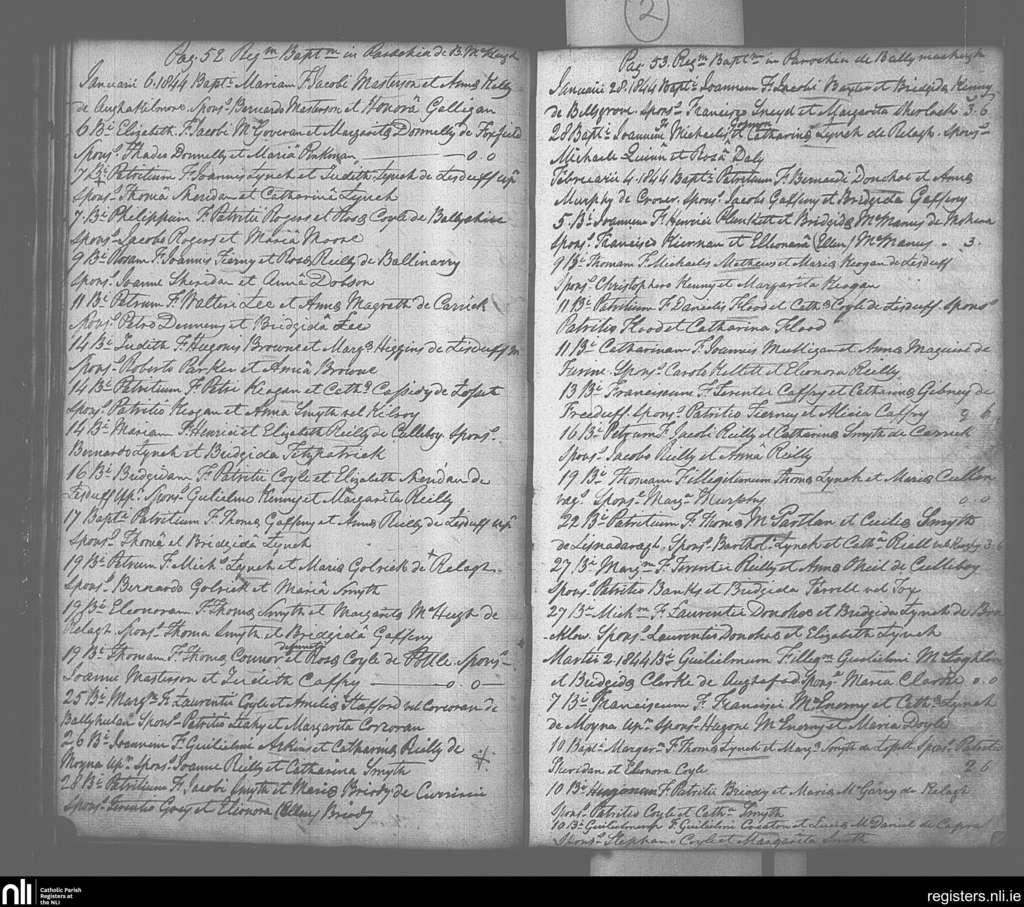 2
Pag. 52 Reg.m Bapt.m in Parochia de B. McHugh
Januarii 6. 1844 Bapt.i Mariam F. Jacobi Masterson et Anna Kelly
de Aughakilmore Spons.s Bernardo Masterson et Honorâ Galligan
6 B.i Elizabeth F. Jacobi McGovern et Margarita Donnelly de Foxfield
Spons.s Thadeo Donnelly et Mariâ 0.0
7 B.i Patritium F. Joannis Lynch et Judith Lynch de Lisduff up.r
Spons.s Thomâ Sheridan et Catharinâ Lynch
7 B.i Philippum F. Patritii Rogers et Rosa Coyle de
Spons.s Jacobo Rogers et Mariâ Moore
9 B.i Rosam F. Joannis et Rosa Reilly de Ballinarry
Spons.s Joanne Sheridan et Annâ Dobson
11 B.i Petrum F. Walteri Lee et Anna Magrath de Carrick
Spons.s Petro et Bridgidâ Lee
14 B.i Judith F. Hugonis Browne et Marg.a Higgins de Lisduff
Spons.s Roberto Parker et Anna Browne
14 B.i Patritium F. Petri Keogan et Cath.a Cassidy de
Spons.s Patritio Keogan et Anna Smyth vel Kilroy
14 B.i Mariam F. Henrici et Elizabeth Reilly de Culleboy. Spons.s
Bernardo Lynch et Bridgida Fitzpatrick
16 B.i Bridgidam F. Patritii Coyle et Elizabeth Sheridan de
Lisduff up.r Spons.s Gulielmo Kenny et Margarita Reilly
17 Bapt.i Patritium F. Thoma Gaffny et Anna Reilly de Lisduff up.r
Spons.s Thomâ et Bridgidâ Lynch
19 B.i Petrum F. Mich.s Lynch et Maria Golrick de Relagh.
Spons.s Bernardo Golrick et Mariâ Smyth
19 B.i Eleonoram F. Thoma Smyth et Margarita McHugh de
Relagh Spons.s Thoma Smyth et Bridgidâ Gaffeny
defuncti
19 B.i Thomam F. Thoma Connor et Rosa Coyle de Spons.s
Joanne Masterson et Judith Caffry 0.0
25 B.i Marg.m F. Laurentii Coyle et Amelia Stafford vel Corcoran de
Spons.s Patritio Leahy et Margarita Corcoran
26 B.i Joannem F. Gulielmi Atkins et Catharina Reilly de
Moyna up.r Spons.s Joanne Reilly et Catharina Smyth
28 B.i Patritium F. Jacobi Smyth et Maria Briody de
Spons.s Terentio Gray et Elenora (Ellen) Briody
Pag. 53. Reg.m Bapt.m in Parochia de Ballymachugh
Januarii 28. 1844 Bapt.i Joannem F. Jacobi Baxter et Bridgida Kenny
de Bellgrove Spons.s Francisco Sneyd et Margarita Sherlock 3.6
28 Bapt.i Joannem F. Michaelis et Catharina Lynch de Relagh. Spons.s
Michaele Quinn et Rosâ Daly
Februarii 4. 1844 Bapt.i Patritium F. Bernardi Donohoe et Anna
Murphy de Crover. Spons.s Jacobo Gaffeny et Bridgida Gaffeny
5 B.i Joannem F. Henrici Plunkett et Bridgida McManus de
Spons.s Francisco Kiernan et Elionora (Ellen) McManus 3.
9 B.i Thomam F. Michaelis Mathews et Maria Keogan de Lisduff
Spons.s Christophoro Kenny et Margarita Keogan
11 B.i Patritium F. Danielis Flood et Cath.a Coyle de Lisduff Spons.s
Patritio Flood et Catharina Flood
11 B.i Catharinam F. Joannis Mulligan et Anna Maguire de
Spons.s Carolo Kellett et Elionora Reilly
13 B.i Franciscum F. Terentii Caffry et Catharina Gibney de
Freeduff. Spons.s Patritio Tierney et Alicia Caffry 2 6
16 B.i Petrum F. Jacobi Reilly et Catharina Smyth de Carrick
Spons.s Jacobo Reilly et Annâ Reilly
19 B.i Thomam F. Illegitimum Thoma Lynch et Maria Cullen
vag.s Spons.s Marg.a Murphy 0.0
22 B.i Patritium F. Thoma McPartlan et Cecilia Smyth
de Lisnadaragh. Spons.s Barthol.o Lynch et Cath.a Reill 3.6
27 B.i Marg.m F. Terentii Reilly et Anna Sheil de Culleboy
Spons.s Patritio Banks et Bridgida Farrell vel Fox
27 B.i Mich.m F. Laurentii Donohoe et Bridgida Lynch de
-klow. Spons.s Laurentio Donohoe et Elizabeth Lynch
Martii 2. 1844 B.i Gulielmum F. Illeg.m Gulielmi McLoghlin
et Bridgida Clarke de Spons.s Maria Clarke 0.0
7 B.i Franciscum F. Francisci McEnerny et Cath.a Lynch
de Moyna up.r Spons.s Hugone McEnerny et Maria Doyle
10 Bapt.i Margar.m F. Thoma Lynch et Marg.a Smyth de Spons.s Patritio
Sheridan et Elenora Coyle 2 6
10 B.i Hugonem F. Patritii Briody et Maria McGarry de Relagh
Spons.s Patritio Coyle et Cath.a Smyth
10 B.i Gulielmum F. Gulielmi et McDaniel de
Spons.s Stephano Coyle et Margarita Smith
nli
Catholic Parish
Registers at
the NLI
registers.nli.ie